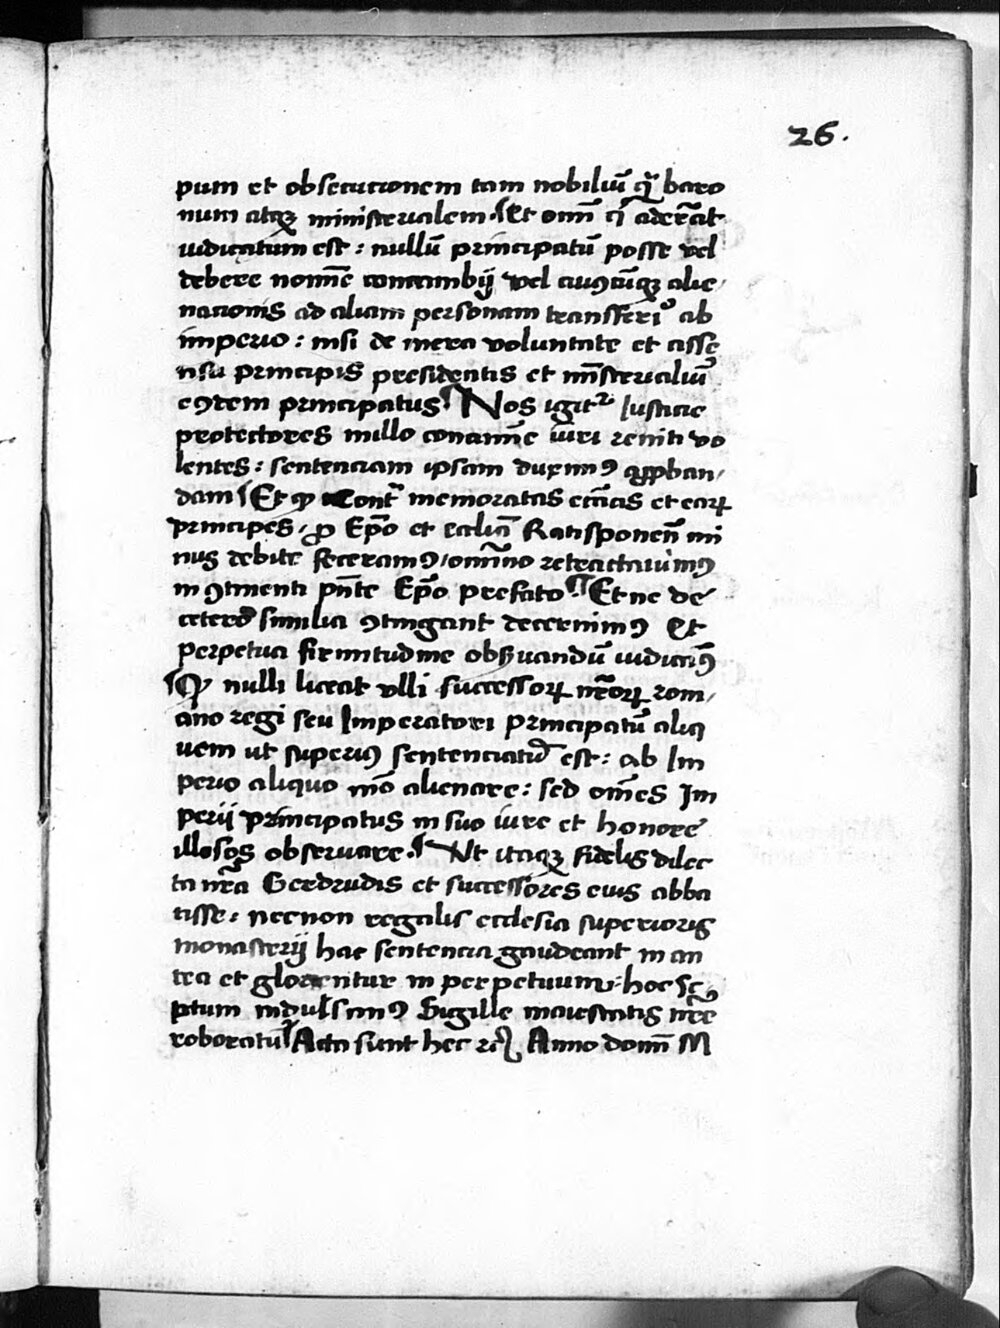 26.
pum et obsecucionem tam nobiliū q̄ baro
num atqꝫ ministerialem. Et om̄ q̄ aderāt
iudicatum est : nullū principatū posse vel
debere nomīe concambij vel cuiꝰcūqꝫ alie
nacionis ad aliam personam transferri ab
imperio : nisi de mera voluntate et asse
nsu principis presidentis et mīsterialiū
eꝯdem principatus Nos igit̄ Iusticie
protectores nullo conamīe iuri reniti vo
lentes : sentenciam ipsam duximꝰ apꝓban
dam Et qꝫ Cont̄ memoratas ecc̄ias et earꝝ
principes / ꝓ Ep̄o et eccliā Ratisponeñ mi
nus debite feceramꝰ / om̄ino retractauimꝰ
in ꝯtinenti p̄nte Ep̄o prefato Et ne de
cetero similia ꝯtingant decernimꝰ Et
perpetua firmitudine obs̄uandū iudicamꝰ
Qꝫ nulli liceat vlli successorꝝ nr̄orꝝ rom
ano regi seu Imperatori principatū aliq
uem ut superiꝰ sentenciatū est : ab Im
perio aliquo mō alienare : sed om̄es Im
perij principatus in suo iure et honore
illesos obseruare. Ut itaqꝫ fidelis dilec
ta nr̄a Gerdrudis et successores eius abba
tisse : necnon regalis ecclesia superioris
monasterij hac sentencia gaudeant in an
tea et glorientur in perpetuum : hoc Sc
ptum indulsimꝰ Sigille maiestatis nr̄e
roboratū Acta sunt hec Anno domī M